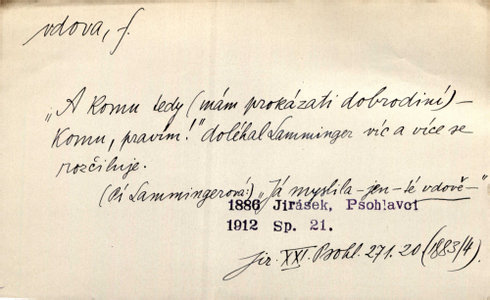 vdova, f.
„A komu tedy (mám prokázati dobrodiní) –
komu, pravím!" doléhal Lamminger víc a více se
rozčiluje.
(Pí Lammingerová:) „Já myslila – jen – té vdově –"
1886 Jirásek, Psohlavci
1912 Sp. 21.
Jir. XXI. Psohl. 271.20 (1883/4)